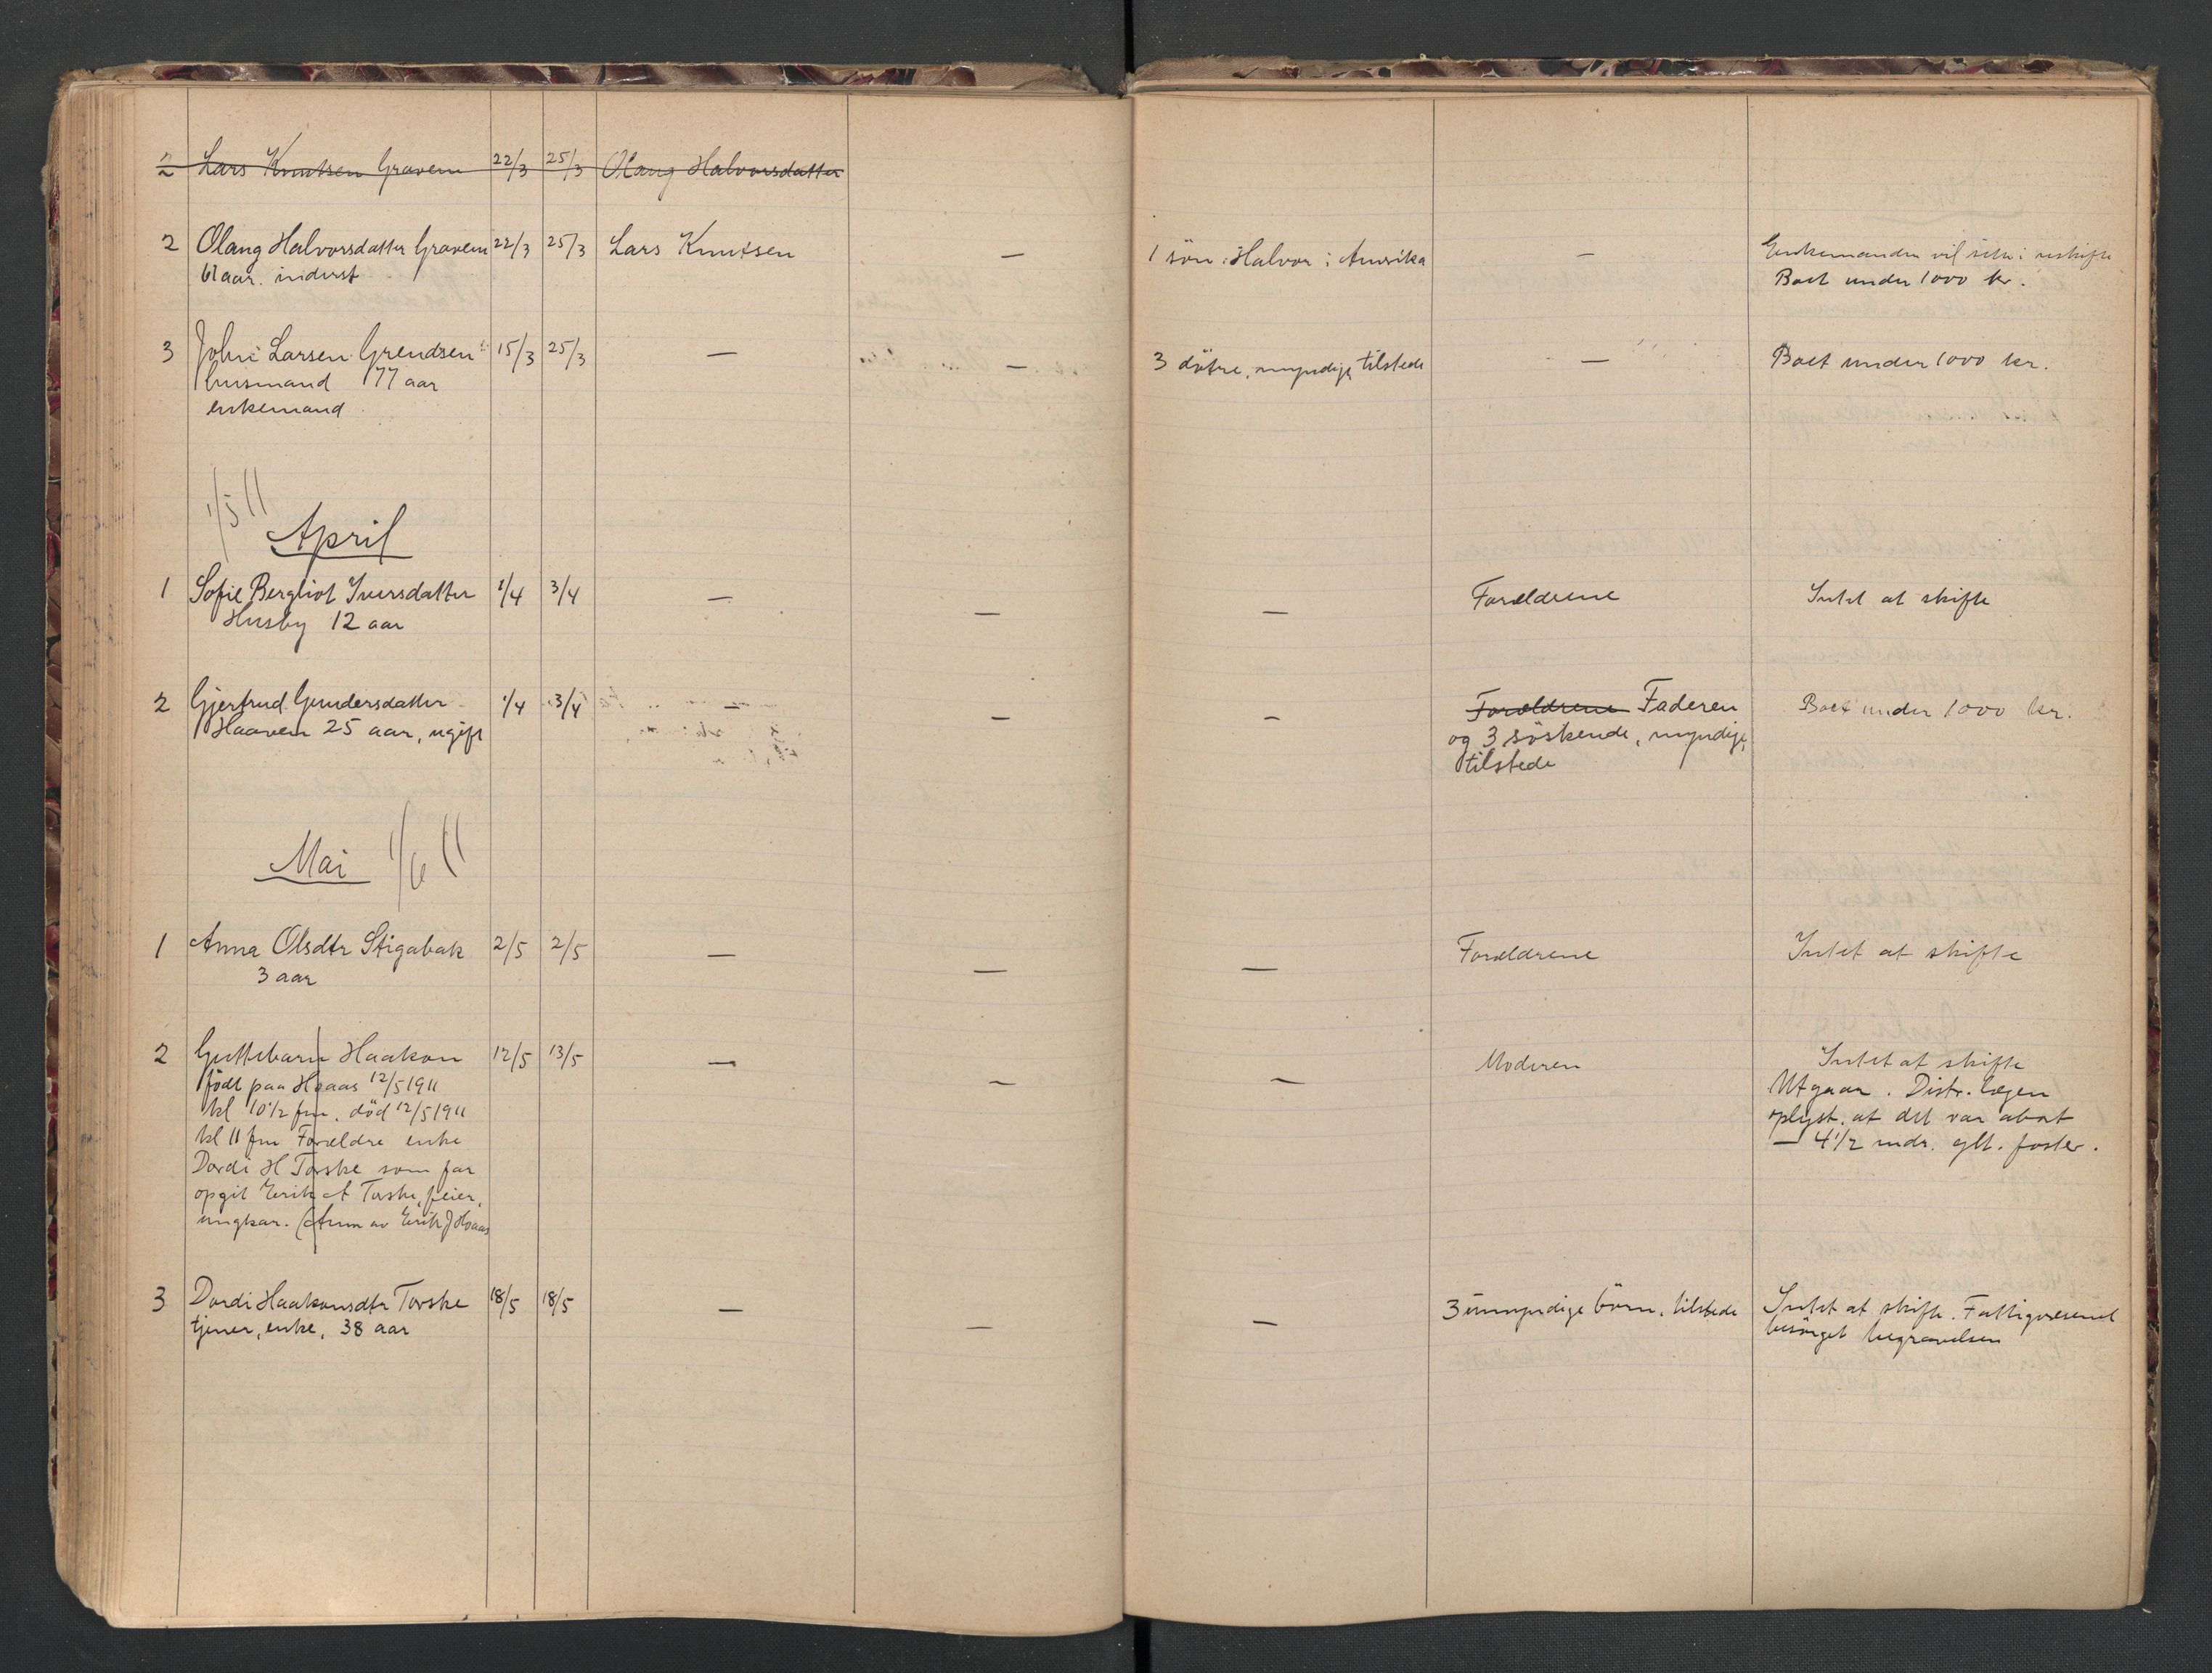 2 Lars Knutsen Gravem 22/3 25/3 Olaug Halvorsdatter
2 Olaug Halvorsdatter Gravem 22/3 25/3 Lars Knutsen — 1 sön: Halvor i Amerika — Enkemanden vil sitte i uskifte
61 aar. inderst Boet under 1000 kr.
3 John Larsen Grendsen 15/3 25/3 — — 3 dötre, myndige, tilstede — Boet under 1000 kr.
husmand 77 aar
enkemand
1/5 11
April
1 Sofie Bergliot Iversdatter 1/4 3/4 — — — Forældrene Intet at skifte
Husby 12 aar
2 Gjertrud Gundersdatter 1/4 3/4 — — — Forældrene Faderen Boet under 1000 kr.
Haaven 25 aar, ugift og 3 söskende, myndige,
tilstede
Mai 1/6 11
1 Anna Olsdtr Stigabak 2/5 2/5 — — — Forældrene Intet at skifte
3 aar
2 Guttebarn Haakon 12/5 13/5 — — — Moderen Intet at skifte
födt paa Hoaas 12/5 1911 Utgaar. Distr. lægen
kl 10 1/2 fm. död 12/5 1911 oplyst. at det var abort
kl 11 fm Forældre enke — 4 1/2 mdr. glt. foster.
Dordi H Torske som far
opgit Erik A Torske, feier,
ungkar. (Anm av Erik J Hoaas
3 Dordi Haakonsdtr Torske 18/5 18/5 — — — 3 umyndige börn, tilstede Intet at skifte. Fattigvæsenet
tjener, enke, 38 aar besörget begravelsen